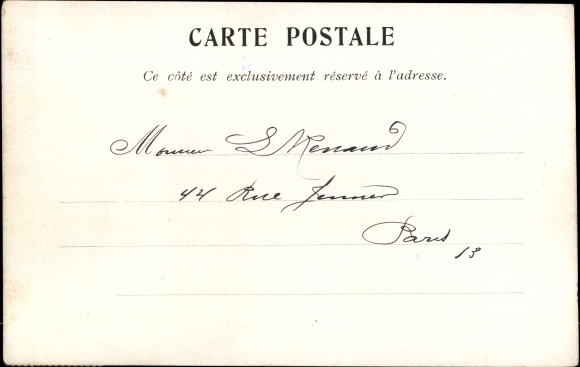 CARTE POSTALE
Ce côté est exclusivement réservé à l'adresse.
Monsieur S Renaud
44 Rue Jenner
Paris
13